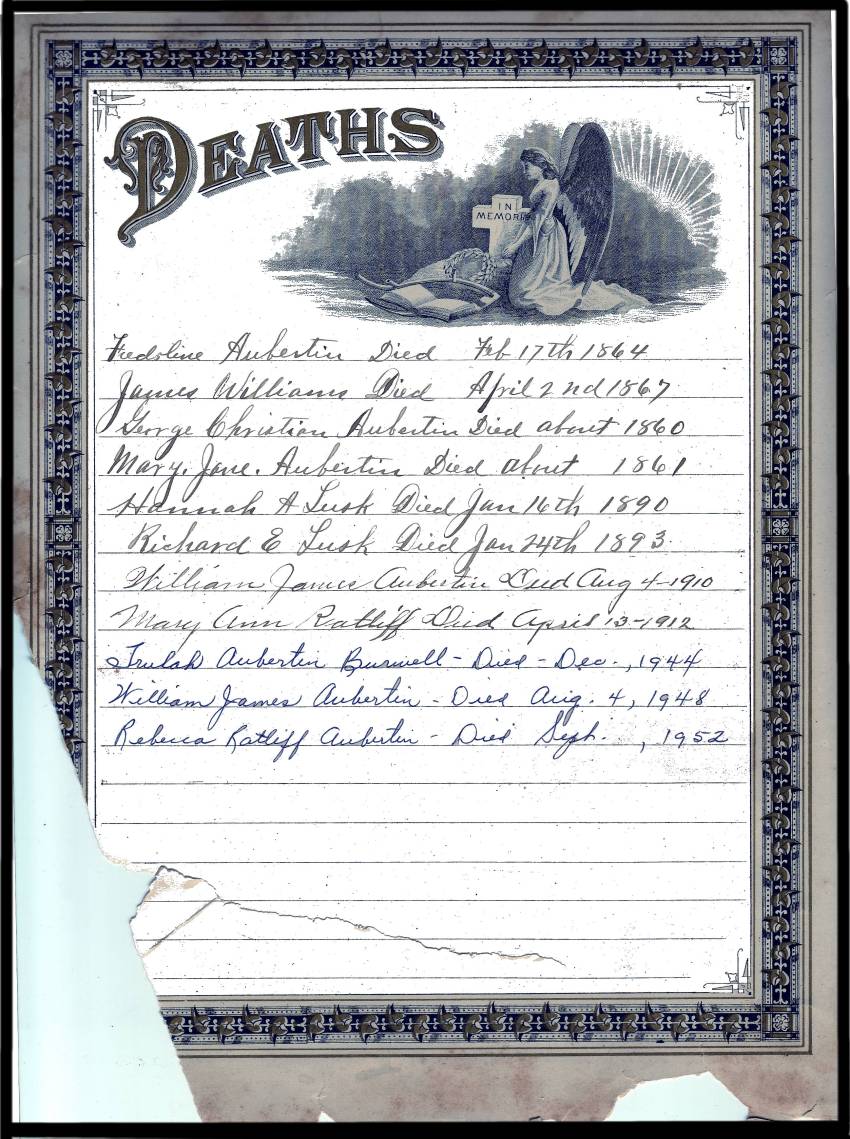 DEATHS
IN
MEMORI
Fredoline Aubertin Died Feb 17th 1864
James Williams Died April 2nd 1867
George Christian Aubertin Died about 1860
Mary. Jane. Aubertin Died about 1861
Hannah A Lusk Died Jan 16th 1890
Richard E Lusk Died Jan 24th 1893
William James Aubertin Died Aug 4-1910
Mary Ann Ratliff Died April 13-1912
Aubertin Burwell - Died - Dec. , 1944
William James Aubertin - Died Aug. 4, 1948
Rebecca Ratliff Aubertin - Died Sept. , 1952